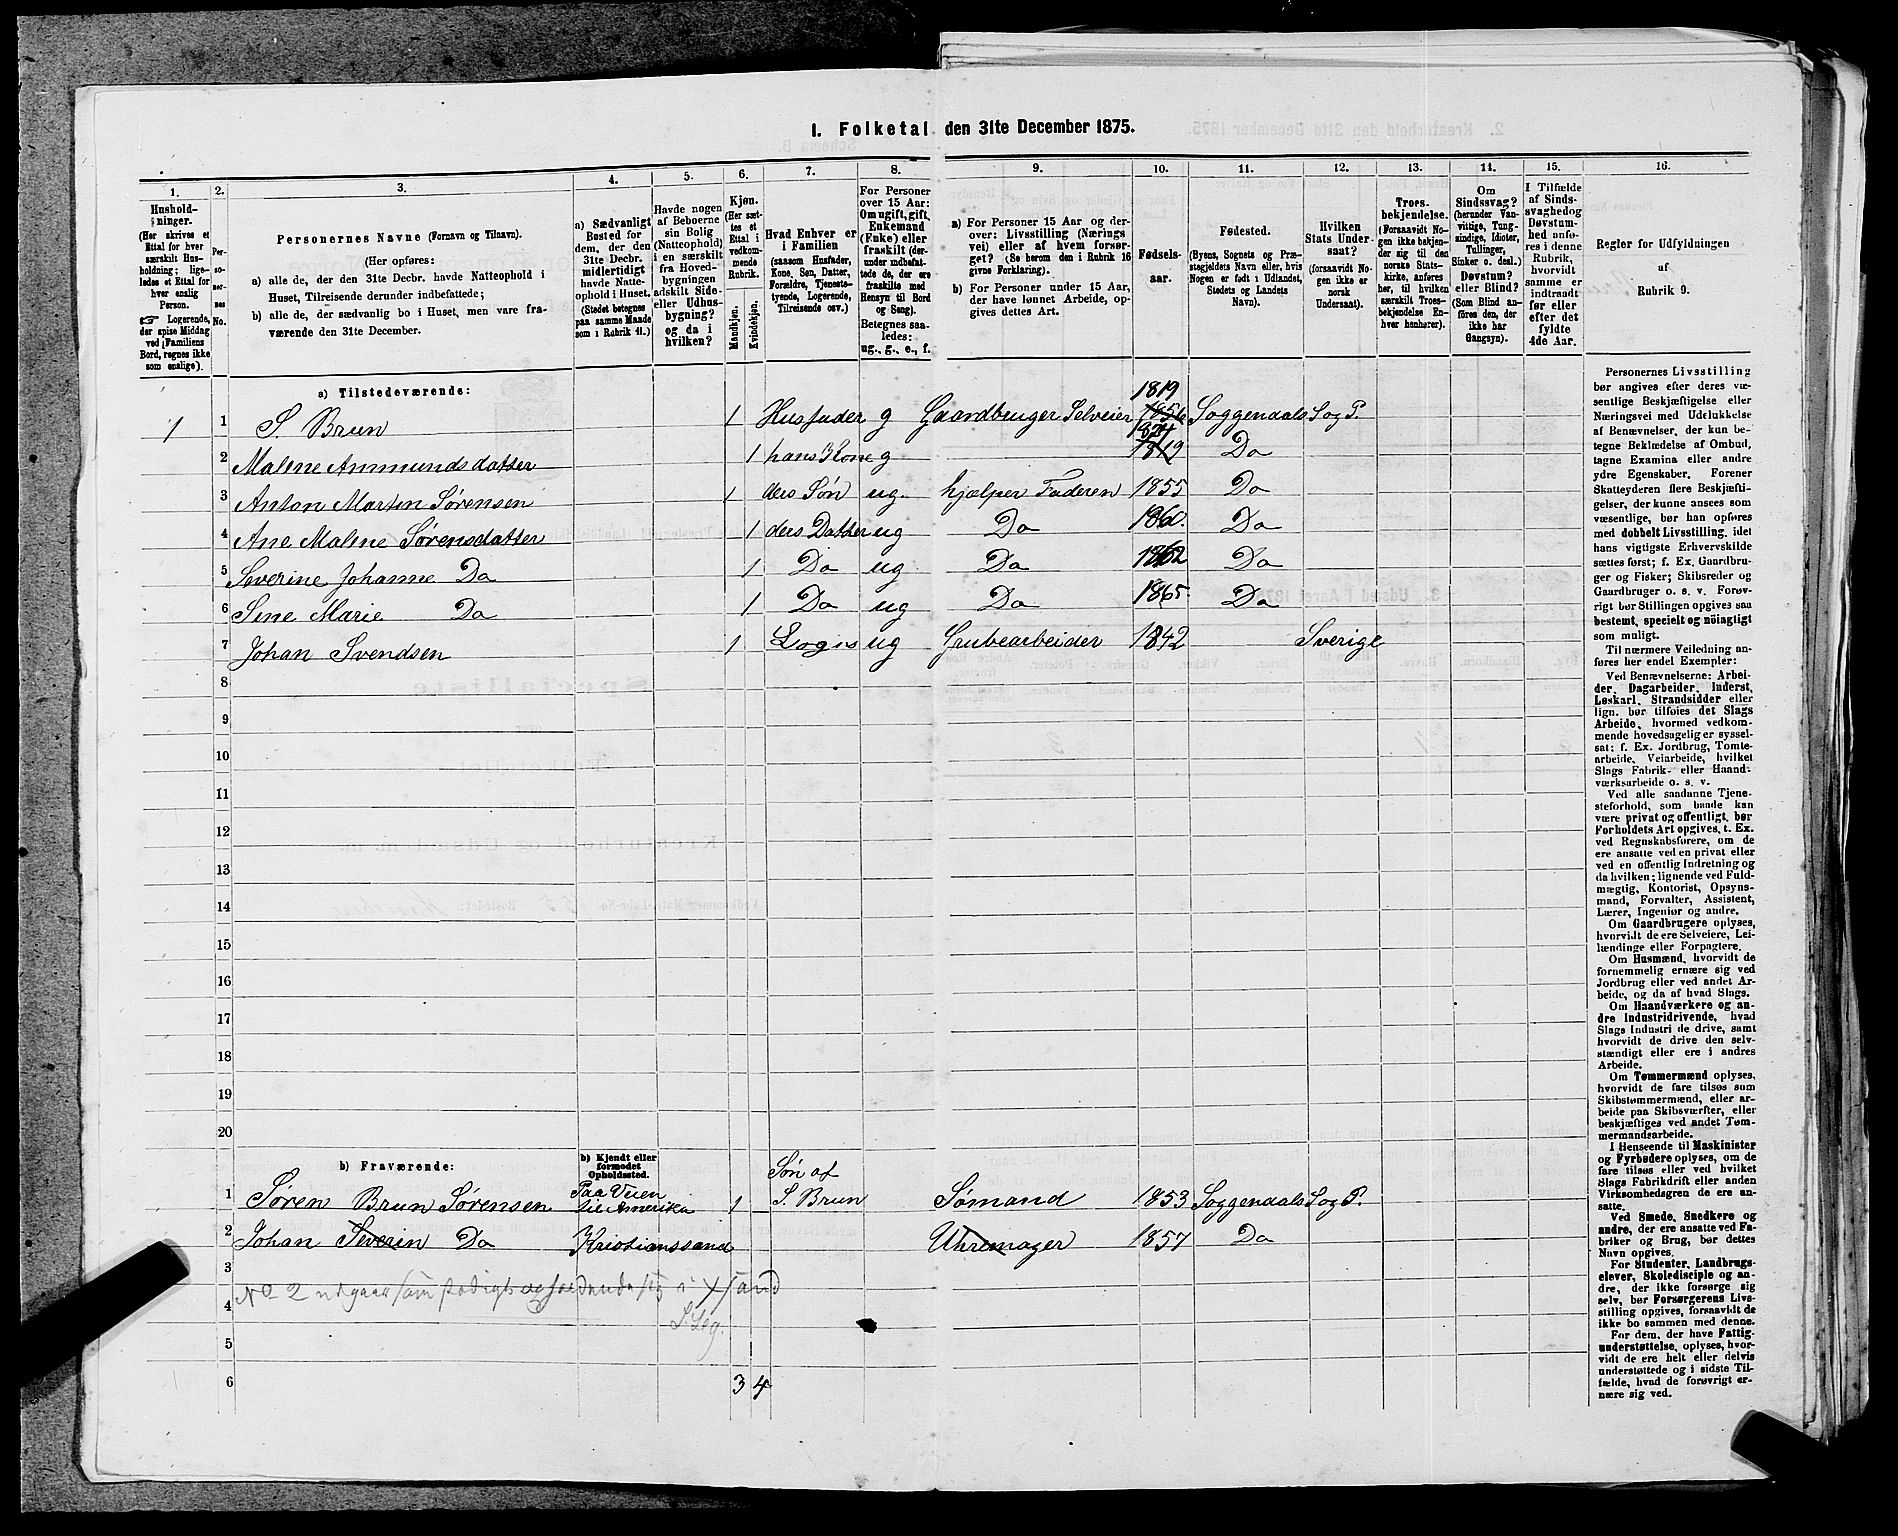 1. Folketal den 31te December 1875.
1.
2.
3.
4.
5.
6.
7.
8.
9.
10.
11.
12.
13.
14.
15.
16.
Hushold-
ninger.
(Her skrives et
Ettal for hver
særskilt Hus-
holdning; lige-
ledes et Ettal for
hver enslig
Person.
☞ Logerende,
der spise Middag
ved Familiens
Bord, regnes ikke
som enslige).
Per-
so-
ner-
nes
No.
Personernes Navne (Fornavn og Tilnavn).
(Her opføres:
a) alle de, der den 31te Decbr. havde Natteophold i
Huset, Tilreisende derunder indbefattede;
b) alle de, der sædvanlig bo i Huset, men vare fra-
værende den 31te December.
a) Sædvanligt
Bosted for
dem, der den
31te Decbr.
midlertidigt
havde Natte-
ophold i Huset.
(Stedet betegnes
paa samme Maade
som i Rubrik 11.)
Havde nogen
af Beboerne
sin Bolig
(Natteophold)
i en særskilt
fra Hoved-
bygningen
adskilt Side-
eller Udhus-
bygning?
og da i
hvilken?
Kjøn.
(Her sæt-
tes et
Ettal i
vedkom-
mende
Rubrik.
Mandkjøn.
Kvindekjøn.
Hvad Enhver er
i Familien
(saasom Husfader,
Kone, Søn, Datter,
Forældre, Tjeneste-
tyende, Logerende,
Tilreisende osv.)
For Personer
over 15 Aar:
Om ugift, gift,
Enkemand
(Enke) eller
fraskilt (der-
under indbefat-
tede de, der ere
fraskilte med
Hensyn til Bord
og Seng).
Betegnes saa-
ledes:
ug., g., e., f.
a) For Personer 15 Aar og der-
over: Livsstilling (Nærings
vei) eller af hvem forsør-
get? (Se herom den i Rubrik 16
givne Forklaring).
b) For Personer under 15 Aar,
der have lønnet Arbeide, op-
gives dettes Art.
Fødsels-
aar.
Fødested.
(Byens, Sognets og Præ-
stegjeldets Navn eller, hvis
Nogen er født i Udlandet,
Stedets og Landets
Navn).
Hvilken
Stats Under-
saat?
(forsaavidt No-
gen ikke er
norsk
Undersaat).
Troes-
bekjendelse.
(Forsaavidt No-
gen ikke bekjen-
der sig til den
norske Stats-
kirke, anføres
her, til hvilken
særskilt Troes-
bekjendelse En-
hver henhører).
Om
Sindssvag?
(herunder Van-
vittige, Tung-
sindige, Idioter,
Tullinger,
Sinker o. desl.)
Døvstum?
eller Blind?
(Som Blind an-
føres den, der
ikke har
Gangsyn).
I Tilfælde
af Sinds-
svaghed og
Døvstum-
hed anfø-
res i denne
Rubrik,
hvorvidt
samme er
indtraadt
før eller
efter det
fyldte
4de Aar.
Regler for Udfyldningen
af
Rubrik 9.
a) Tilstedeværende:
1 1 S. Brun 1 Husfader g Gaardbruger Selveier 1819 1856 Soggendals Sog P.
2 Malene Anmundsdatter 1 hans Kone g 1824 1819 Do
3 Anton Martin Sørensen 1 ders Søn ug hjælper Faderen 1855 Do
4 Ane Malene Sørensdatter 1 ders Datter ug Do 1860. Do
5 Severine Johanne Do 1 Do ug Do 1862 Do
6 Sine Marie Do 1 Do ug Do 1865. Do
7 Johan Svendsen 1 Logis ug Grubearbeider 1842 Sverige
8
9
10
11
12
13
14
15
16
17
18
19
20
b) Fraværende:
b) Kjendt eller
formodet
Opholdssted.
1 Søren Brun Sørensen Paa Veien til Amerika 1 Søn af S Brun Sømand 1853 Soggendals Sog P.
2 Johan Severin Do Kristianssand Uhrmager 1857 Do
3
4 No 2 udgaar som
5
6 3 4
Personernes Livsstilling
bør angives efter deres væ-
sentlige Beskjæftigelse eller
Næringsvei med Udelukkelse
af Benævnelser, der kun be-
tegne Beklædelse af Ombud,
tagne Examina eller andre
ydre Egenskaber. Forener
Skatteyderen flere Beskjæfti-
gelser, der kunne ansees som
væsentlige, bør han opføres
med dobbelt Livsstilling, idet
hans vigtigste Erhvervskilde
sættes først; f. Ex. Gaardbru-
ger og Fisker; Skibsreder og
Gaardbruger o. s. v. Forøv-
rigt bør Stillingen opgives saa
bestemt, specielt og nøiagtigt
som muligt.
Til nærmere Veiledning an-
føres her endel Exempler:
Ved Benævnelserne: Arbei-
der, Dagarbeider, Inderst,
Løskarl, Strandsidder eller
lign. bør tilføies det Slags
Arbeide, hvormed vedkom-
mende hovedsagelig er syssel-
sat; f. Ex. Jordbrug, Tomte-
arbeide, Veiarbeide, hvilket
Slags Fabrik- eller Haand-
værksarbeide o. s. v.
Ved alle saadanne Tjene-
steforhold, som baade kan
være privat og offentligt, bør
Forholdets Art opgives, t. Ex.
ved Regnskabsførere, om de
ere ansatte ved en privat eller
ved en offentlig Indretning og
da hvilken; lignende ved Fuld-
mægtig, Kontorist, Opsyns-
mand, Forvalter, Assistent,
Lærer, Ingeniør og andre.
Om Gaardbrugere oplyses,
hvorvidt de ere Selveiere, Lei-
lændinge eller Forpagtere.
Om Husmænd, hvorvidt de
fornemmelig ernære sig ved
Jordbrug eller ved andet Ar-
beide, og da af hvad Slags.
Om Haandværkere og an-
dre Industridrivende, hvad
Slags Industri de drive, samt
hvorvidt de drive den selv-
stændigt eller ere i andres
Arbeide.
Om Tømmermænd oplyses,
hvorvidt de fare tilsøs som
Skibstømmermænd, eller ar-
beide paa Skibsværfter, eller
beskjæftiges ved andet Tøm-
mermandsarbeide.
I Henseende til Maskinister
og Fyrbødere oplyses, om de
fare tilsøs eller ved hvilket
Slags Fabrikdrift eller anden
Virksomhedsgren de ere an-
satte.
Ved Smede, Snedkere og
andre, der ere ansatte ved Fa-
briker og Brug, bør dettes
Navn opgives.
For Studenter, Landbrugs-
elever, Skoledisciple og an-
dre, der ikke forsørge sig
selv, bør Forsørgerens Livs-
stilling opgives, forsaavidt de
ikke bo sammen med denne.
For dem, der have Fattig-
understøttelse, oplyses, hvor-
vidt de ere helt eller delvis
understøttede og i sidste Til-
fælde, hvad de forøvrigt er-
nære sig ved.